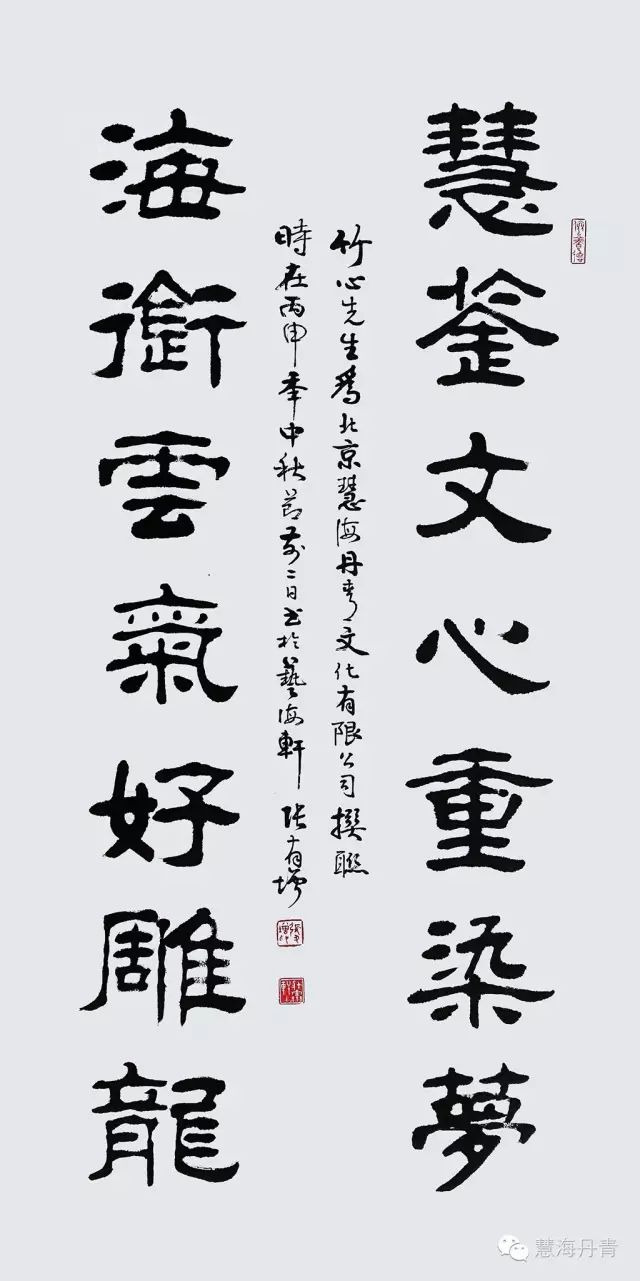 慧文心重染夢
竹心先生爲北京慧海丹青文化有限公司撰聯
時在丙申年中秋节前二日书於藝海軒 张有增
海銜雲氣好雕龍
慧海丹青